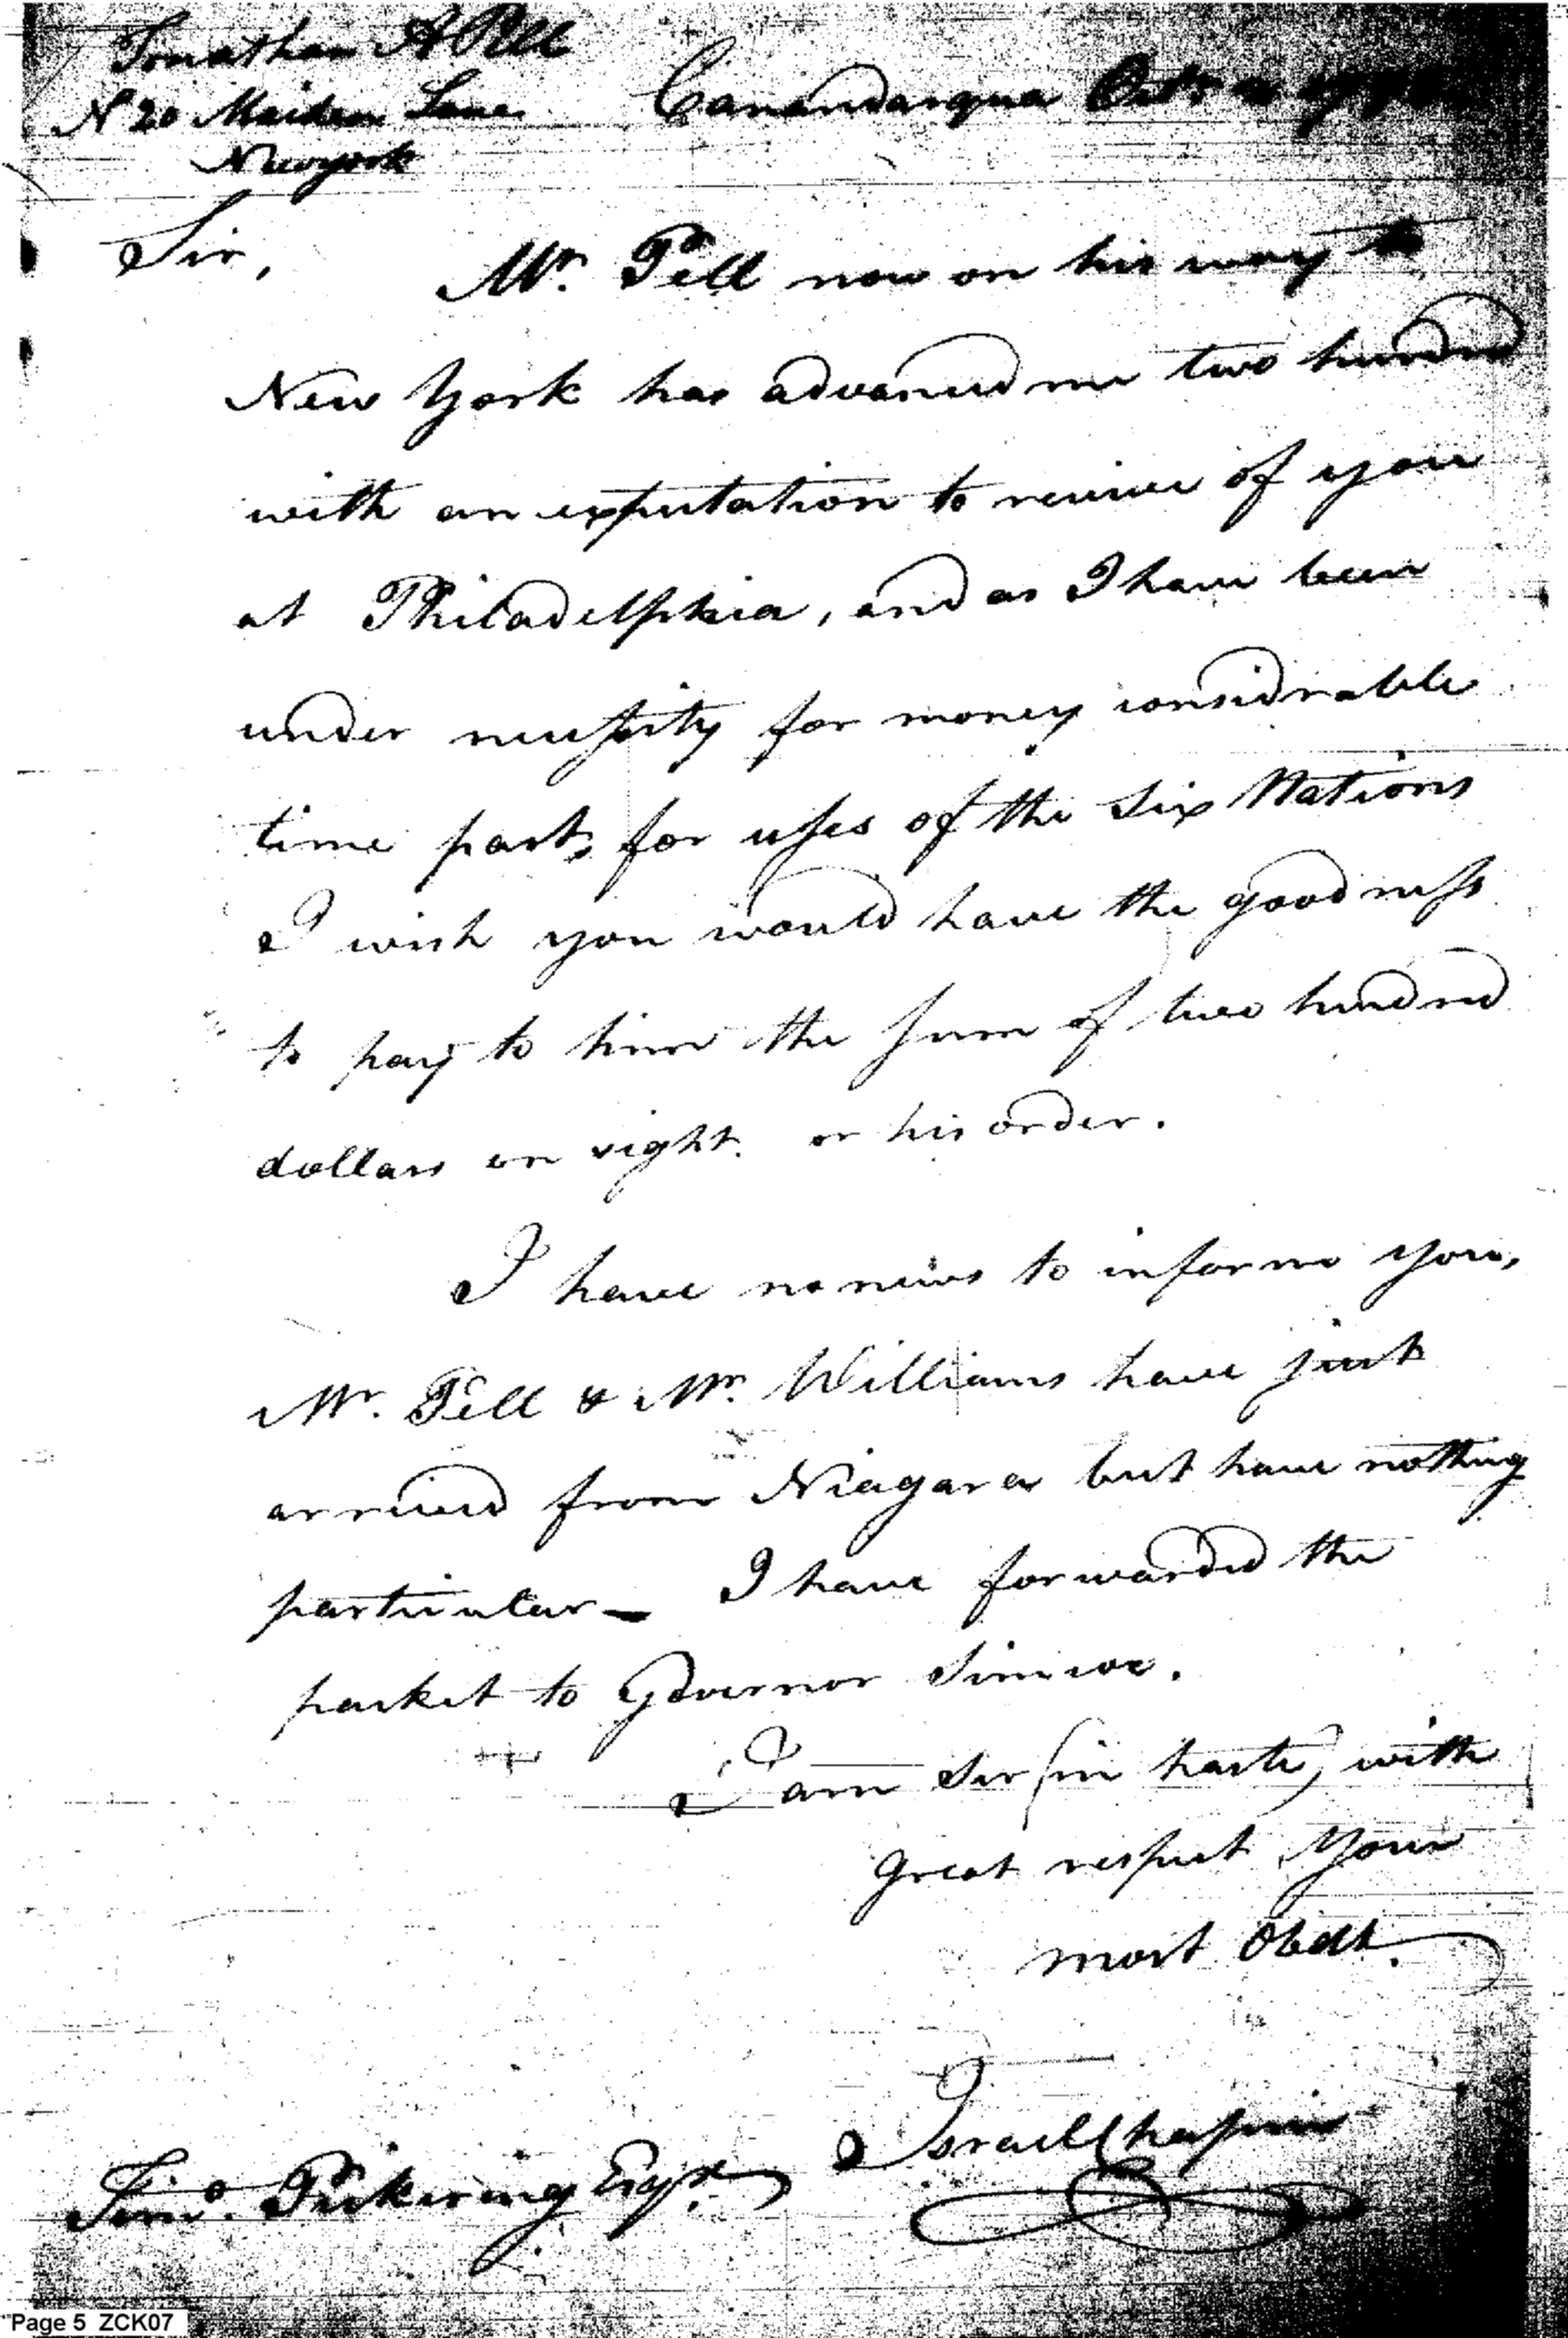 Jonathan A Pell
N 20 Maiden Lane
Newyork
Canandarqua Octr
Sir,
Mr. Pell now on his way to
New York has advanced me two hundred
with an expectation to receive of you
at Philadelphia, and as I have been
under necessity for money considrable
time past, for uses of the Six Nations
I wish you would have the goodness
to pay to him the sum of two hundred
dollars on sight. or his order.
I have no news to inform you,
Mr. Pell & Mr. Williams have just
arrived from Niagara but have nothing
particular – I have forwarded the
packet to Governor Simcoe.
I am Sir (in haste) with
great respect Your
most Obedt.
Israel Chapin
Timo. Pickering Esqr.
Page 5 ZCK07